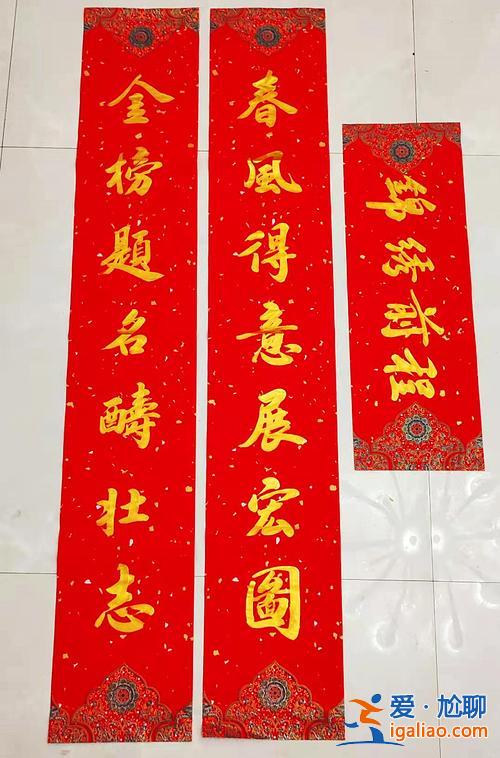 金榜題名醻壯志
春風得意展宏圖
錦綉前程
爱·尬聊
igaliao.com